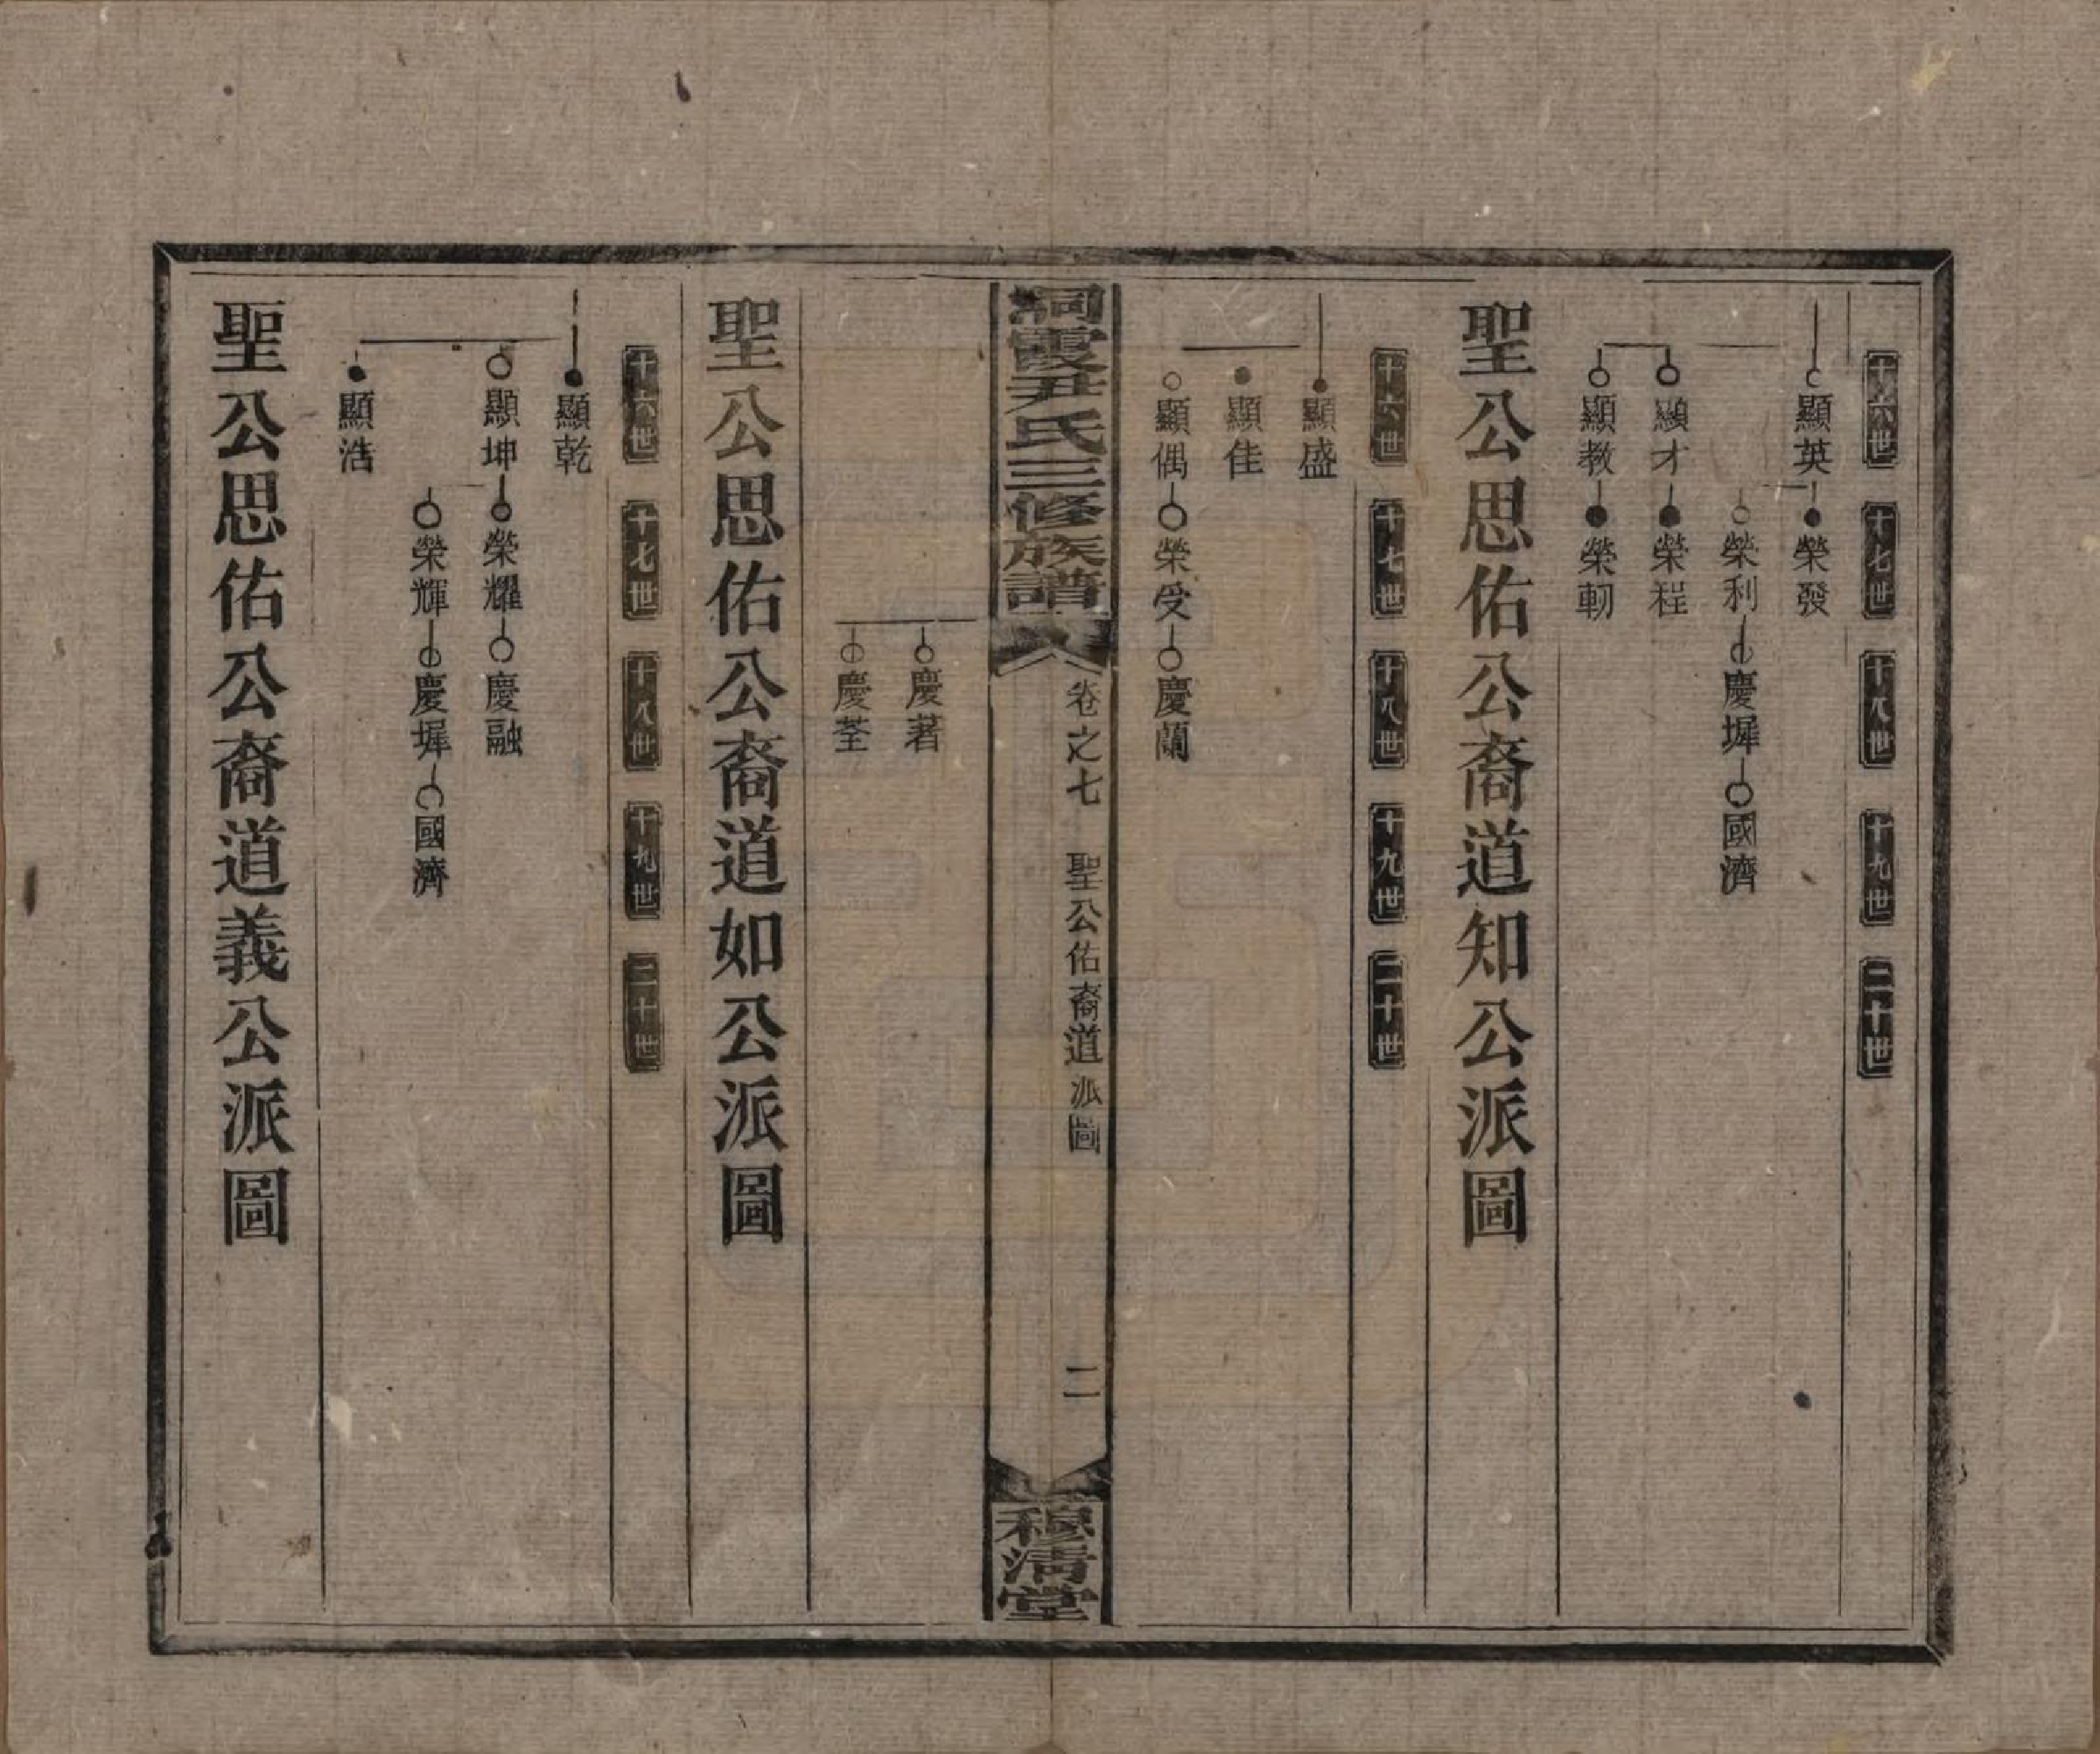 十六世 十七世 十八世 十九世 二十世
顯英 榮發
榮利 慶墀 國濟
顯才 榮程
顯教 榮軔
聖公思佑公裔道知公派圖
十六世 十七世 十八世 十九世 二十世
顯盛
顯佳
顯偶 榮受 慶蘭
洞霞尹氏三修族譜 卷之七 聖公佑裔道派圖 二 穆清堂
慶著
慶荃
聖公思佑公裔道如公派圖
十六世 十七世 十八世 十九世 二十世
顯乾
顯坤 榮耀 慶融
榮輝 慶墀 國濟
顯浩
聖公思佑公裔道義公派圖